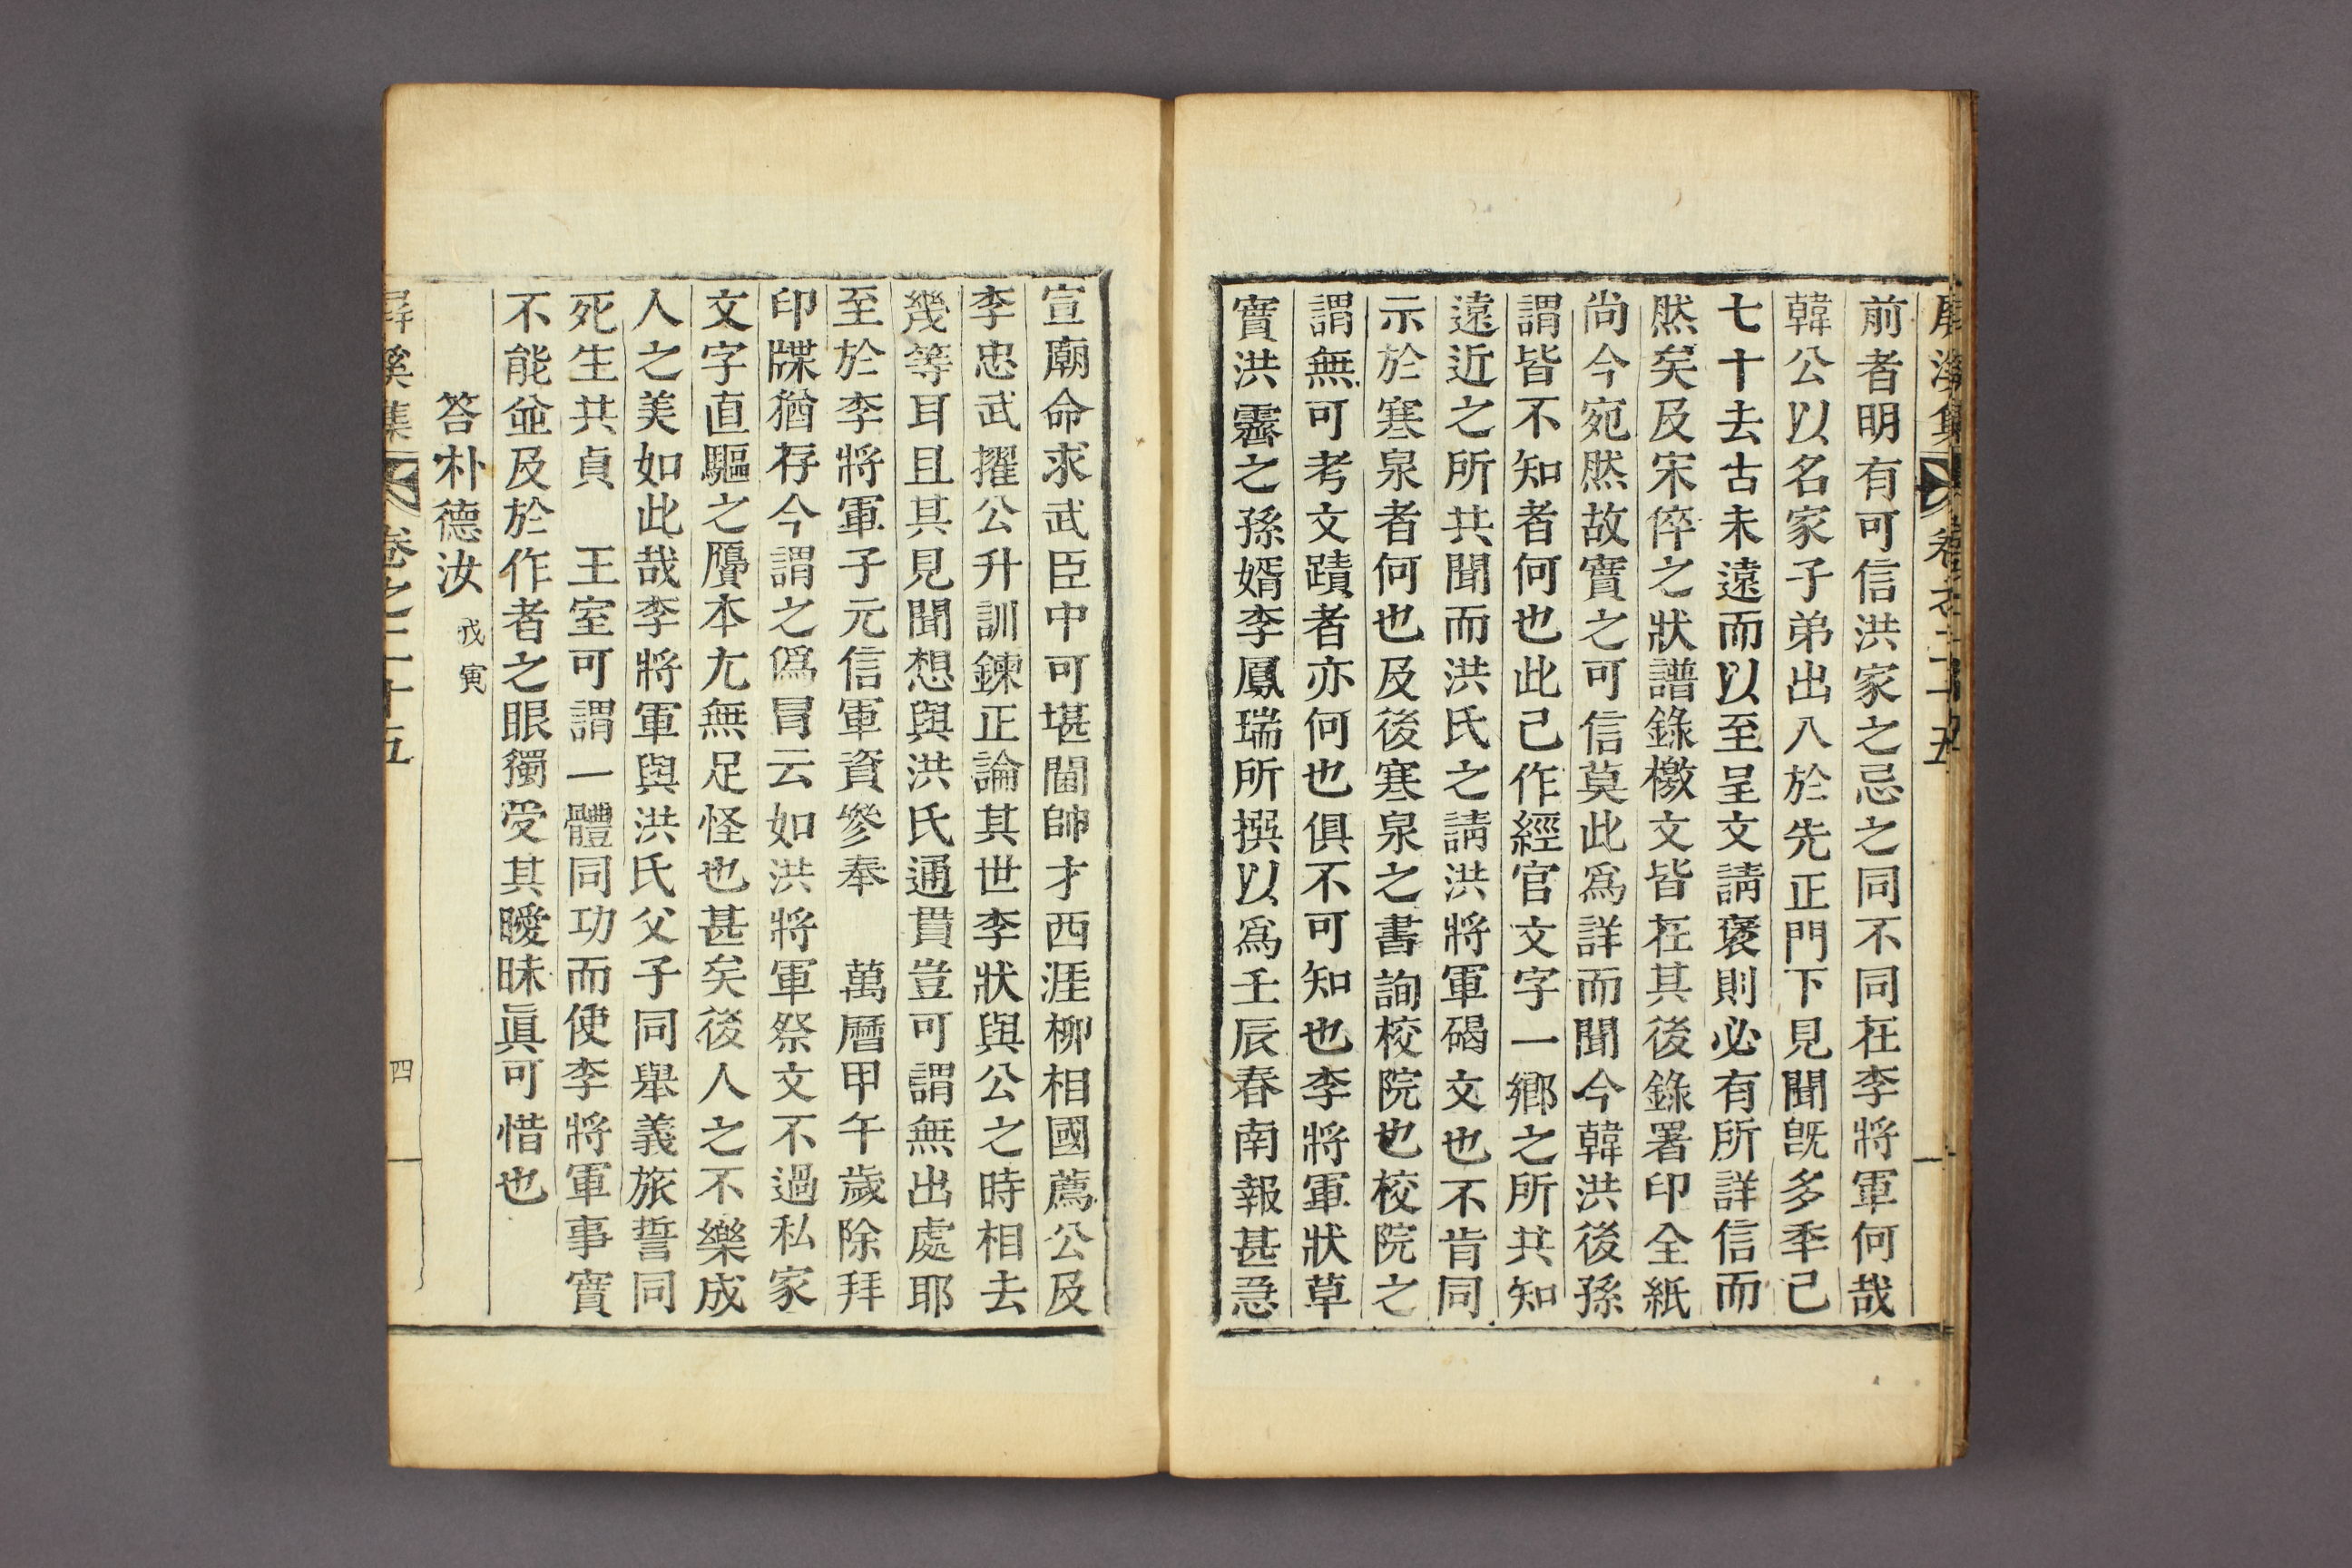 屏溪集 卷之二十五
前者明有可信洪家之忌之同不同在李將軍何哉
韓公以名家子弟出入於先正門下見聞旣多年己
七十去古未遠而以至呈文請褒則必有所詳信而
然矣及宋倅之狀譜錄檄文皆在其後錄署印全紙
尙今宛然故實之可信莫此爲詳而聞今韓洪後孫
謂皆不知者何也此己作經官文字一鄉之所共知
遠近之所共聞而洪氏之請洪將軍碣文也不肯同
示於寒泉者何也及後寒泉之書詢校院也校院之
謂無可考文蹟者亦何也俱不可知也李將軍狀草
實洪霽之孫婿李鳳瑞所撰以爲壬辰春南報甚急
宣廟命求武臣中可堪閫帥才西涯柳相國薦公及
李忠武擢公升訓鍊正論其世李狀與公之時相去
幾等耳且其見聞想與洪氏通貫豈可謂無出處耶
至於李將軍子元信軍資參奉 萬曆甲午歲除拜
印牒猶存今謂之僞冐云如洪將軍祭文不過私家
文字直驅之贋本尢無足怪也甚矣後人之不樂成
人之美如此哉李將軍與洪氏父子同舉義旅誓同
死生共貞 王室可謂一體同功而使李將軍事實
不能並及於作者之眼獨受其曖昧眞可惜也
答朴德汝 戊寅
屏溪集 卷之二十五 四